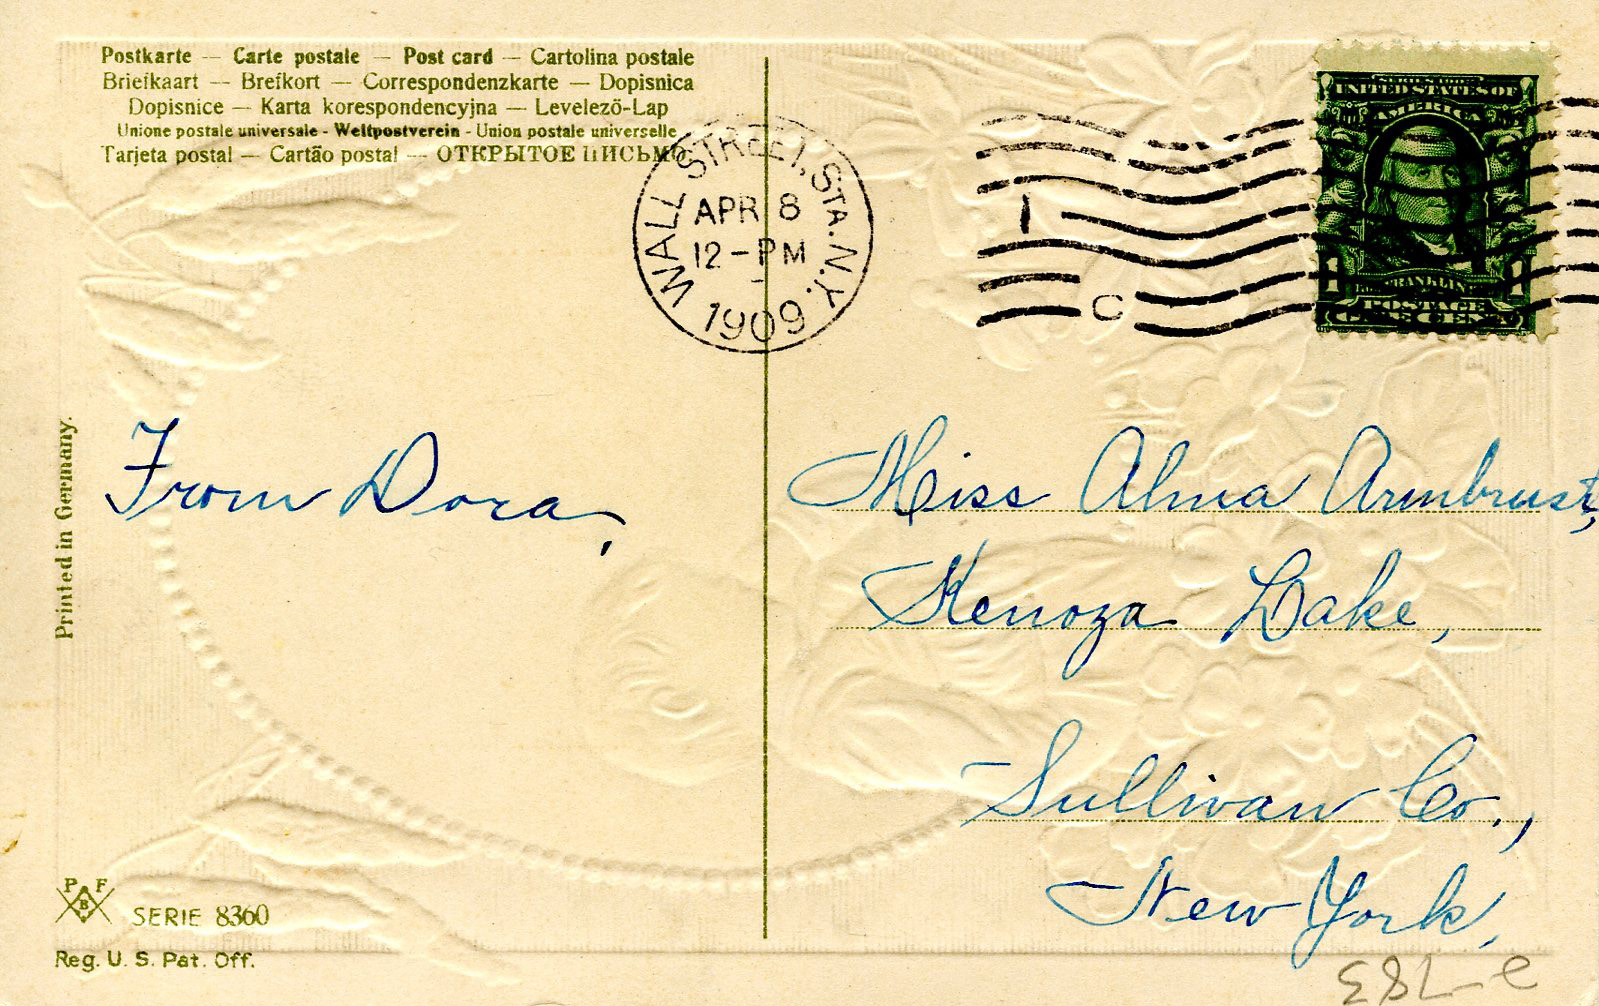 Postkarte — Carte postale — Post card — Cartolina postale
Briefkaart — Brefkort — Correspondenzkarte — Dopisnica
Dopisnice — Karta korespondencyjna — Levelező-Lap
Unione postale universale - Weltpostverein - Union postale universelle
Tarjeta postal — Cartão postal — ОТКРЫТОЕ ПИСЬМО
WALL STREET, STA. N.Y.
APR 8
12-PM
1909
1
C
UNITED STATES OF
AMERICA
1 FRANKLIN 1
POSTAGE
Printed in Germany.
From Dora,
Miss Alma Armbrust,
Kenoza Lake,
Sullivan Co.,
New York,
P F
B
SERIE 8360
Reg. U. S. Pat. Off.